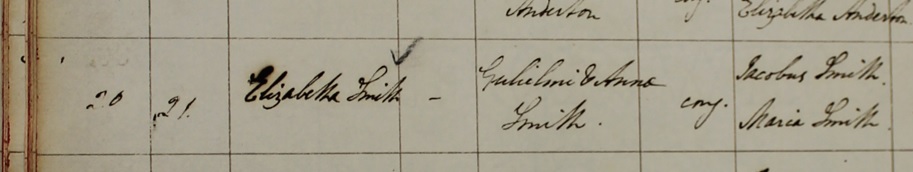 Anderson Elizabetha Anderson
Elizabetha Smith – Gulielmi & Annæ Jacobus Smith.
20 21. Smith. conj. Maria Smith